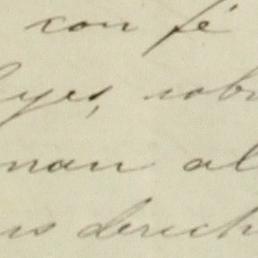 con fé
leyes, sobr
man al
us derech